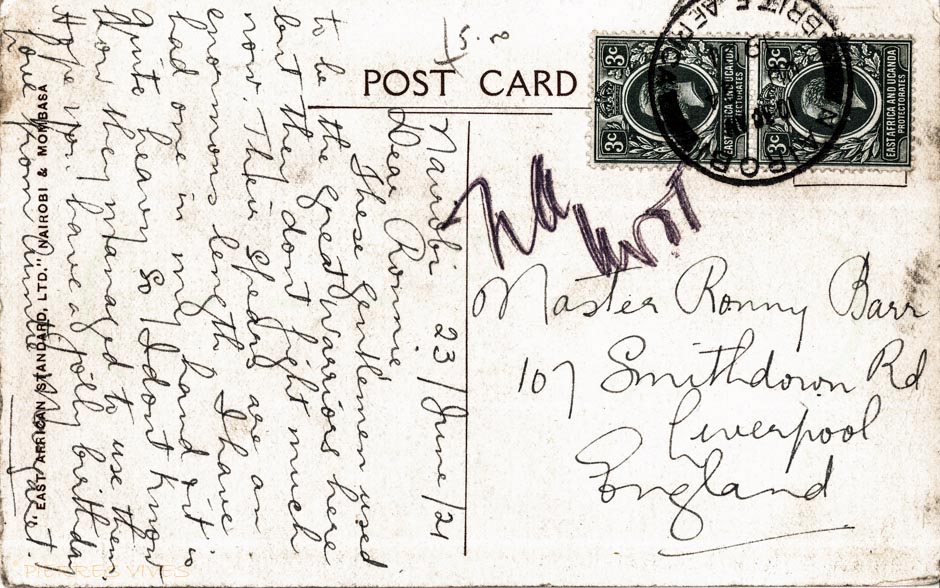 POST CARD
3c
3c
EAST AFRICA AND UGANDA
PROTECTORATES
3c
3c
EAST AFRICA AND UGANDA
PROTECTORATES
NAIROBI
BRIT. E. AFRICA
Nairobi 23/June/21
Dear Ronnie
These gentlemen used
to be the great warriors here
but they dont fight much
now. Their spears are an
enormous length. I have
had one in my hand & it is
quite heavy so I dont know
how they managed to use them
Hope you have a jolly birthday
love from Auntie
"EAST AFRICAN STANDARD, LTD." NAIROBI & MOMBASA
Master Ronny Barr
107 Smithdown Rd
Liverpool
England